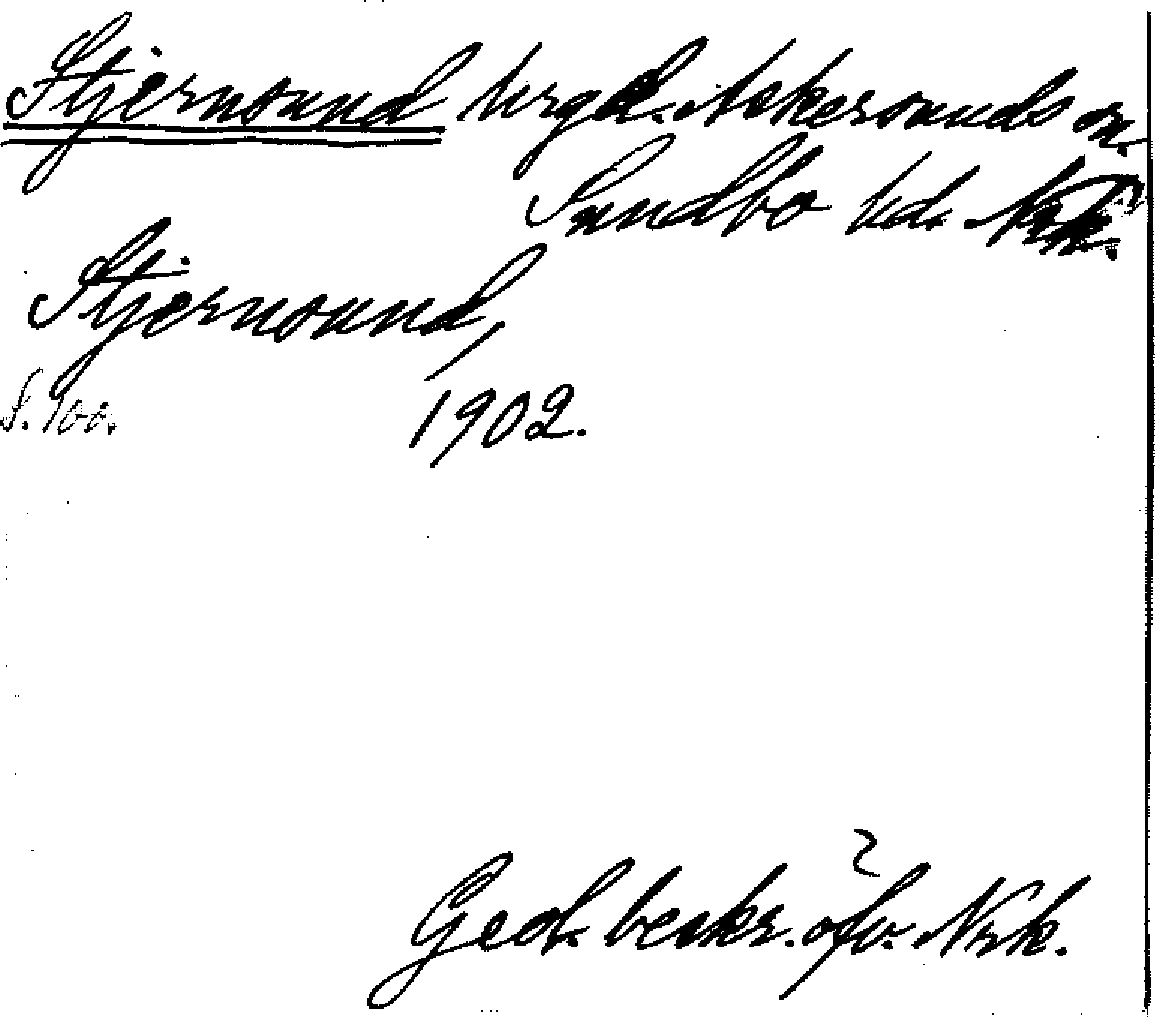 Stjernsund hrgd. Askersunds sn.
Sundbo hd. Nrk.
Stjernsund,
S. 100. 1902.
Geol. beskr. öfv. Nrk.